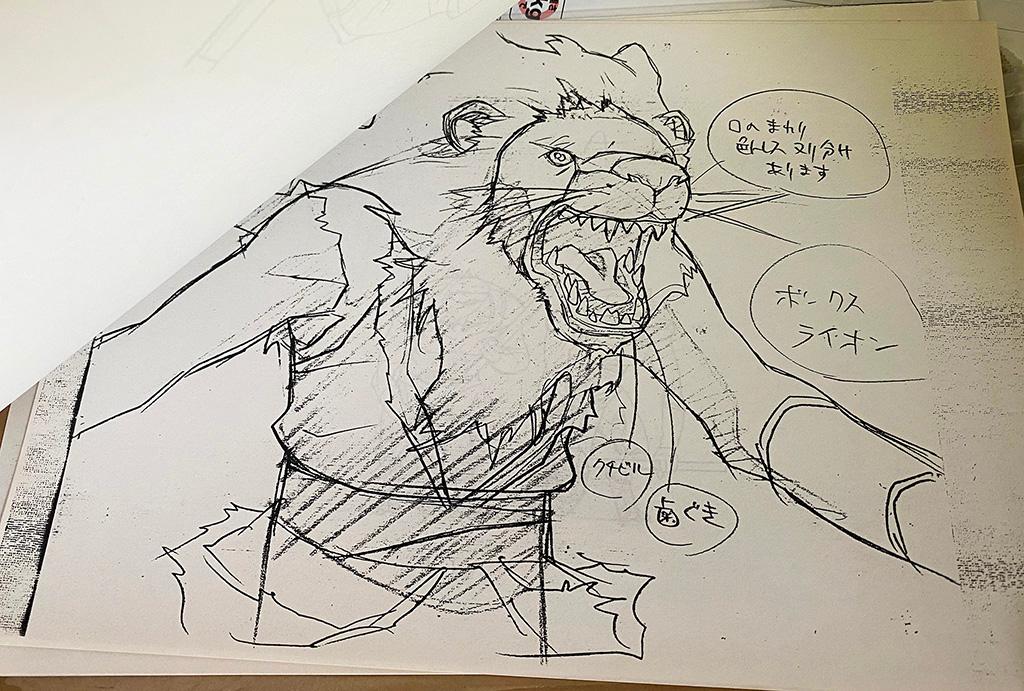 口のまわり
色トレス ヌリ分け
あります
ボックス
ライオン
クチビル
歯ぐき